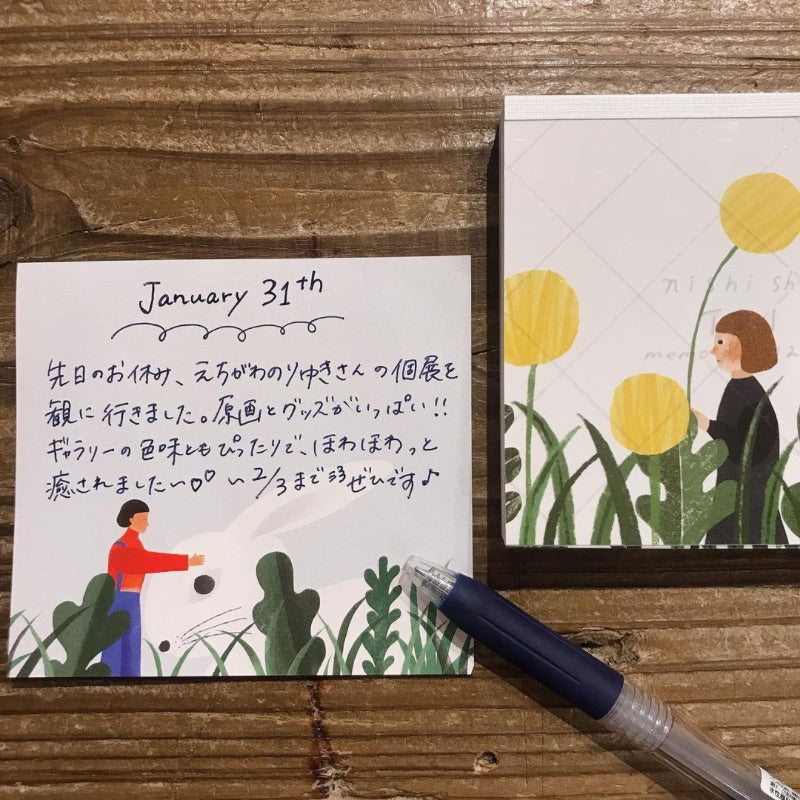 January 31th
先日のお休み、えちがわのりゆきさんの個展を
観に行きました。原画とグッズがいっぱい!!
ギャラリーの色味ともぴったりで、ほわほわっと
癒されましたい♡♡ い 2/3まで ぜひです♪
nishi sh
memo